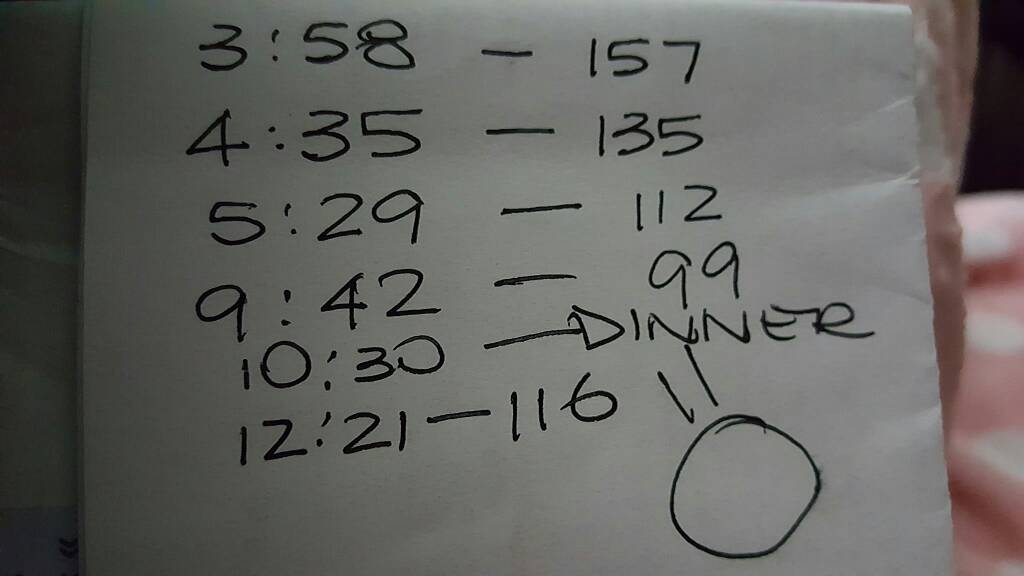 3:58 - 157
4:35 - 135
5:29 - 112
9:42 - 99
10:30 - DINNER
12:21 - 116